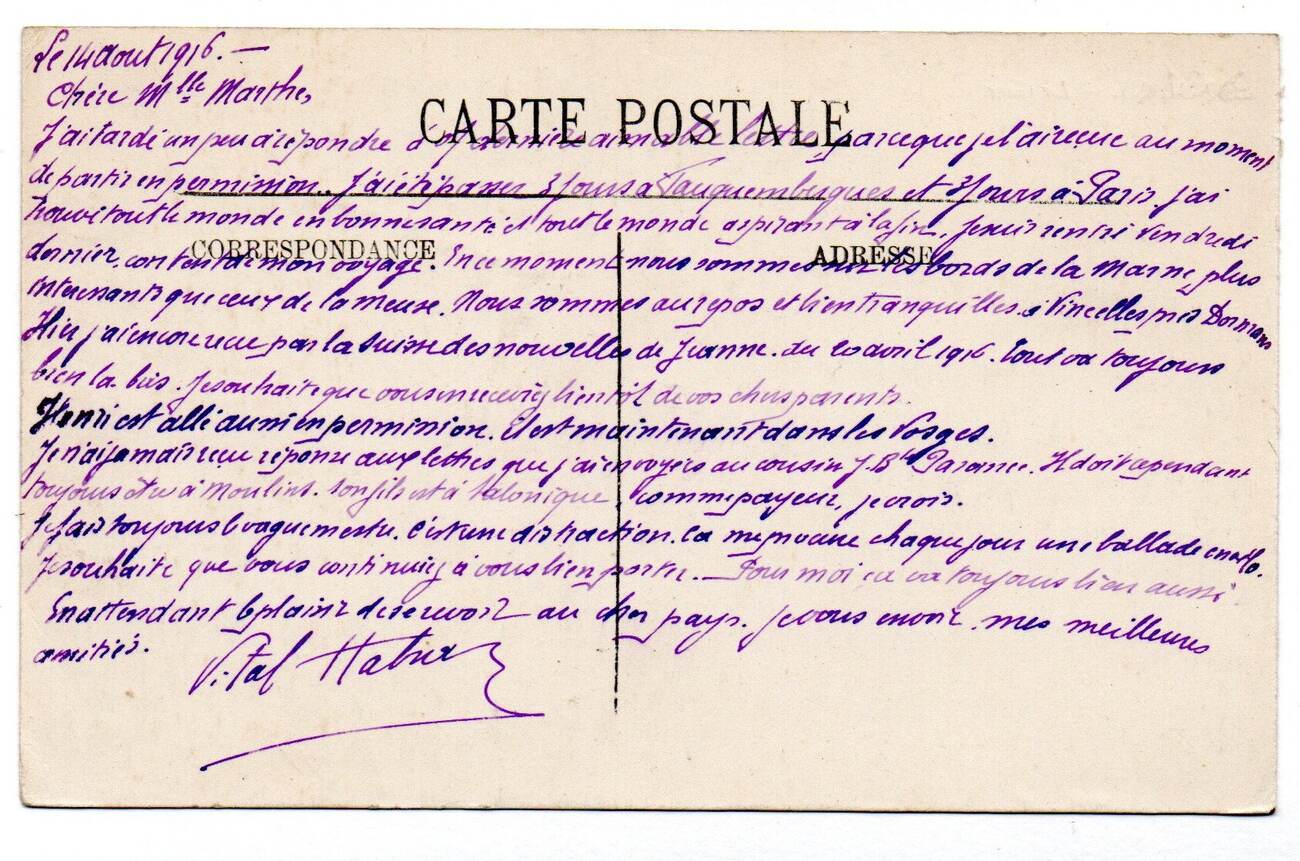 Le 14 aout 1916. —
Chère Mlle Marthe,
CARTE POSTALE
J'ai tardé un peu à répondre à vtre dernière aimable lettre, parceque je l'ai reçue au moment
de partir en permission. J'ai été passer 3 jours à Fauquembergues et 3 jours à Paris. J'ai
trouvé tout le monde en bonne santé et tout le monde aspirant à la fin. Je suis rentré vendredi
CORRESPONDANCE
ADRESSE
dernier, content de mon voyage. En ce moment nous sommes sur les bords de la Marne, plus
intéressants que ceux de la Meuse. Nous sommes au repos et bien tranquilles à Vincelles près Dormans
Hier j'ai encore reçu par la Suisse des nouvelles de Jeanne. du 20 avril 1916. Tout va toujours
bien là bas. Je souhaite que vous en receviez bientôt de vos chers parents.
Henri est allé aussi en permission. Il est maintenant dans les Vosges.
Je n'ai jamais reçu réponse aux lettres que j'ai envoyées au cousin J. Bte. Il doit cependant
toujours être à Moulins. Son fils est à Salonique, comme payeur, je crois.
Je fais toujours le vaguemestre. C'est une distraction. Ca me procure chaque jour une ballade en vélo.
Je souhaite que vous continuiez à vous bien porter. — Pour moi ça va toujours bien aussi.
En attendant le plaisir de se revoir au cher pays. je vous envoie mes meilleures
amitiés.
Vital